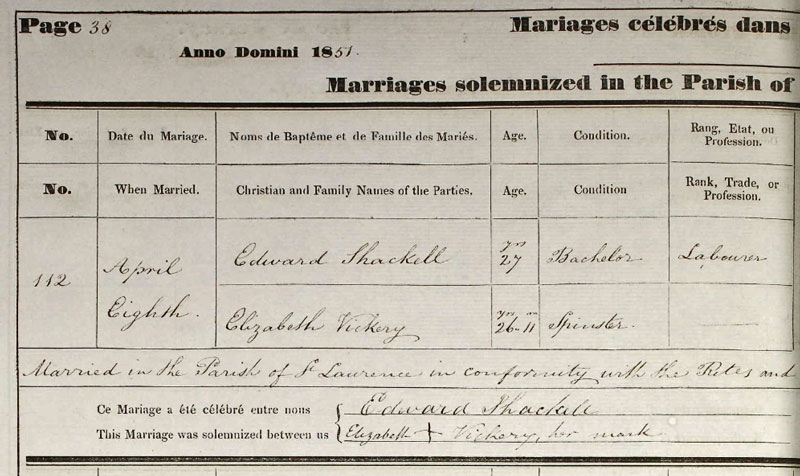 Page 38
Mariages célébrés dans
Anno Domini 1851.
Marriages solemnized in the Parish of
No. Date du Mariage. Noms de Baptême et de Famille des Mariés. Age. Condition. Rang, Etat, ou Profession.
No. When Married. Christian and Family Names of the Parties. Age. Condition Rank, Trade, or Profession.
112 April Eighth. Edward Shackell yrs 27 Bachelor Labourer
Elizabeth Vickery yrs m 26 11 Spinster.
Married in the Parish of St Laurence in conformity with the Rites and
Ce Mariage a été célébré entre nous Edward Shackell
This Marriage was solemnized between us Elizabeth + Vickery, her mark